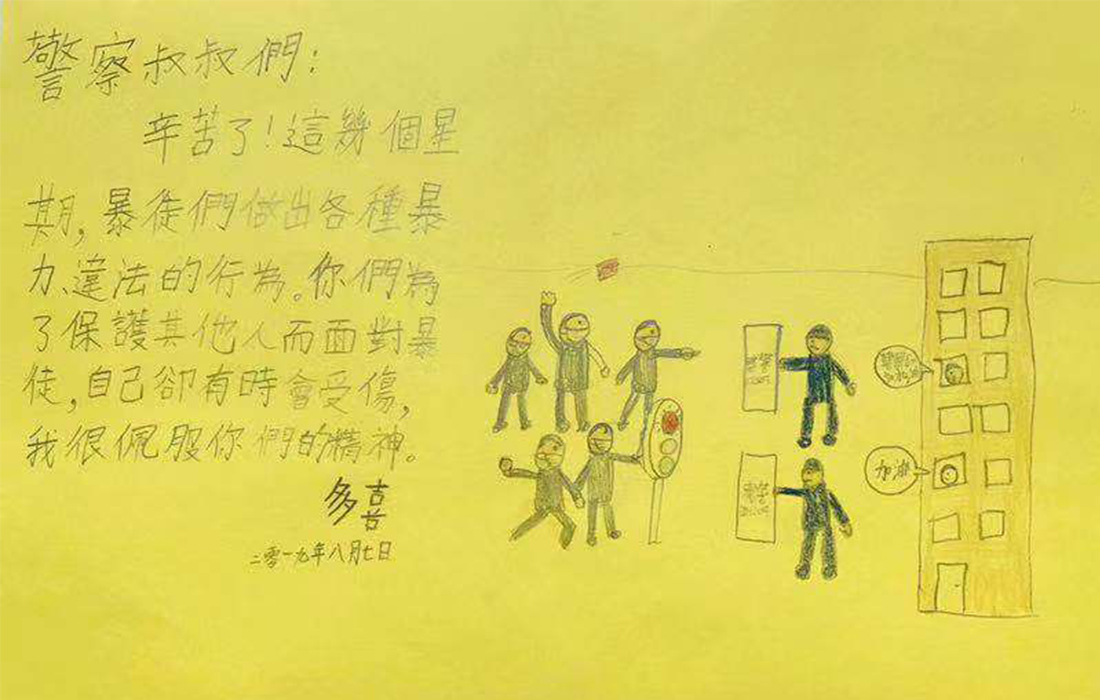 警察叔叔們：
辛苦了！這幾個星
期，暴徒們做出各種暴
力、違法的行為。你們為
了保護其他人而面對暴
徒，自己卻有時會受傷，
我很佩服你們的精神。
多喜
二零一九年八月七日
警察
警察
加油